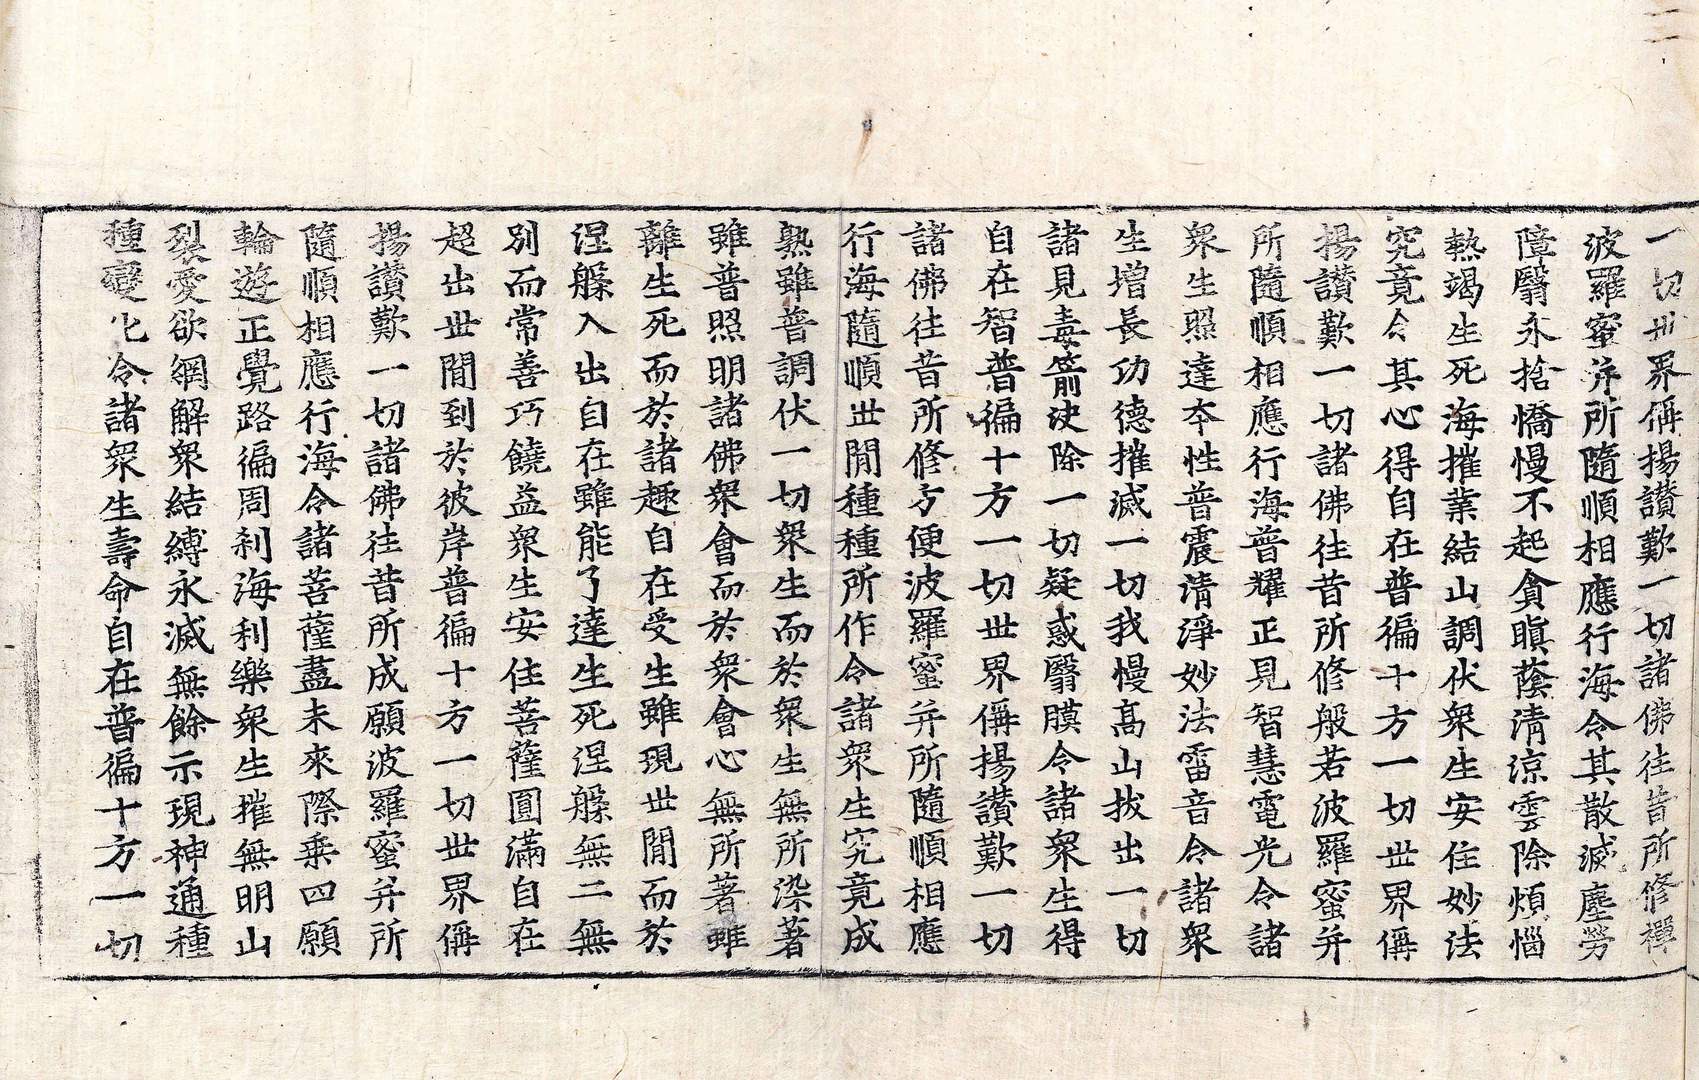 一切世界偁揚讃歎一切諸佛往昔所修禪
波羅蜜并所隨順相應行海令其散滅塵勞
障翳永捨憍慢不起貪瞋蔭清涼雲除煩惱
熱竭生死海摧業結山調伏衆生安住妙法
究竟令其心得自在普徧十方一切世界偁
揚讃歎一切諸佛往昔所修般若波羅蜜并
所隨順相應行海普耀正見智慧電光令諸
衆生照達本性普震清淨妙法雷音令諸衆
生增長功德摧滅一切我慢高山拔出一切
諸見毒箭決除一切疑惑翳膜令諸衆生得
自在智普徧十方一切世界偁揚讃歎一切
諸佛往昔所修方便波羅蜜并所隨順相應
行海隨順世間種種所作令諸衆生究竟成
熟雖普調伏一切衆生而於衆生無所染著
雖普照明諸佛衆會而於衆會心無所著雖
離生死而於諸趣自在受生雖現世間而於
涅槃入出自在雖能了達生死涅槃無二無
別而常善巧饒益衆生安住菩薩圓滿自在
超出世間到於彼岸普徧十方一切世界偁
揚讃歎一切諸佛往昔所成願波羅蜜并所
隨順相應行海令諸菩薩盡未來際乗四願
輪遊正覺路徧周刹海利樂衆生摧無明山
裂愛欲網解衆結縛永滅無餘示現神通種
種變化令諸衆生壽命自在普徧十方一切